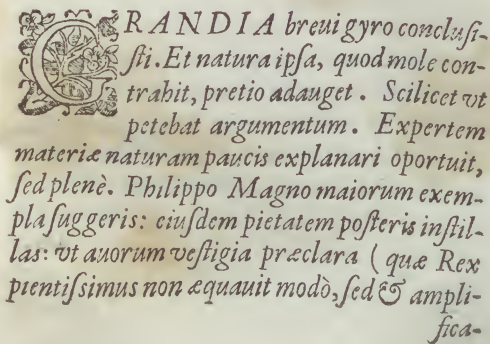 GRANDIA breui gyro conclusi-
sti. Et natura ipsa, quod mole con-
trahit, pretio adauget. Scilicet vt
petebat argumentum. Expertem
materiæ naturam paucis explanari oportuit,
sed plenè. Philippo Magno maiorum exem-
pla suggeris: eiusdem pietatem posteris instil-
las: vt auorum vestigia præclara (quæ Rex
pientissimus non æquauit modò, sed & ampli-
fica-